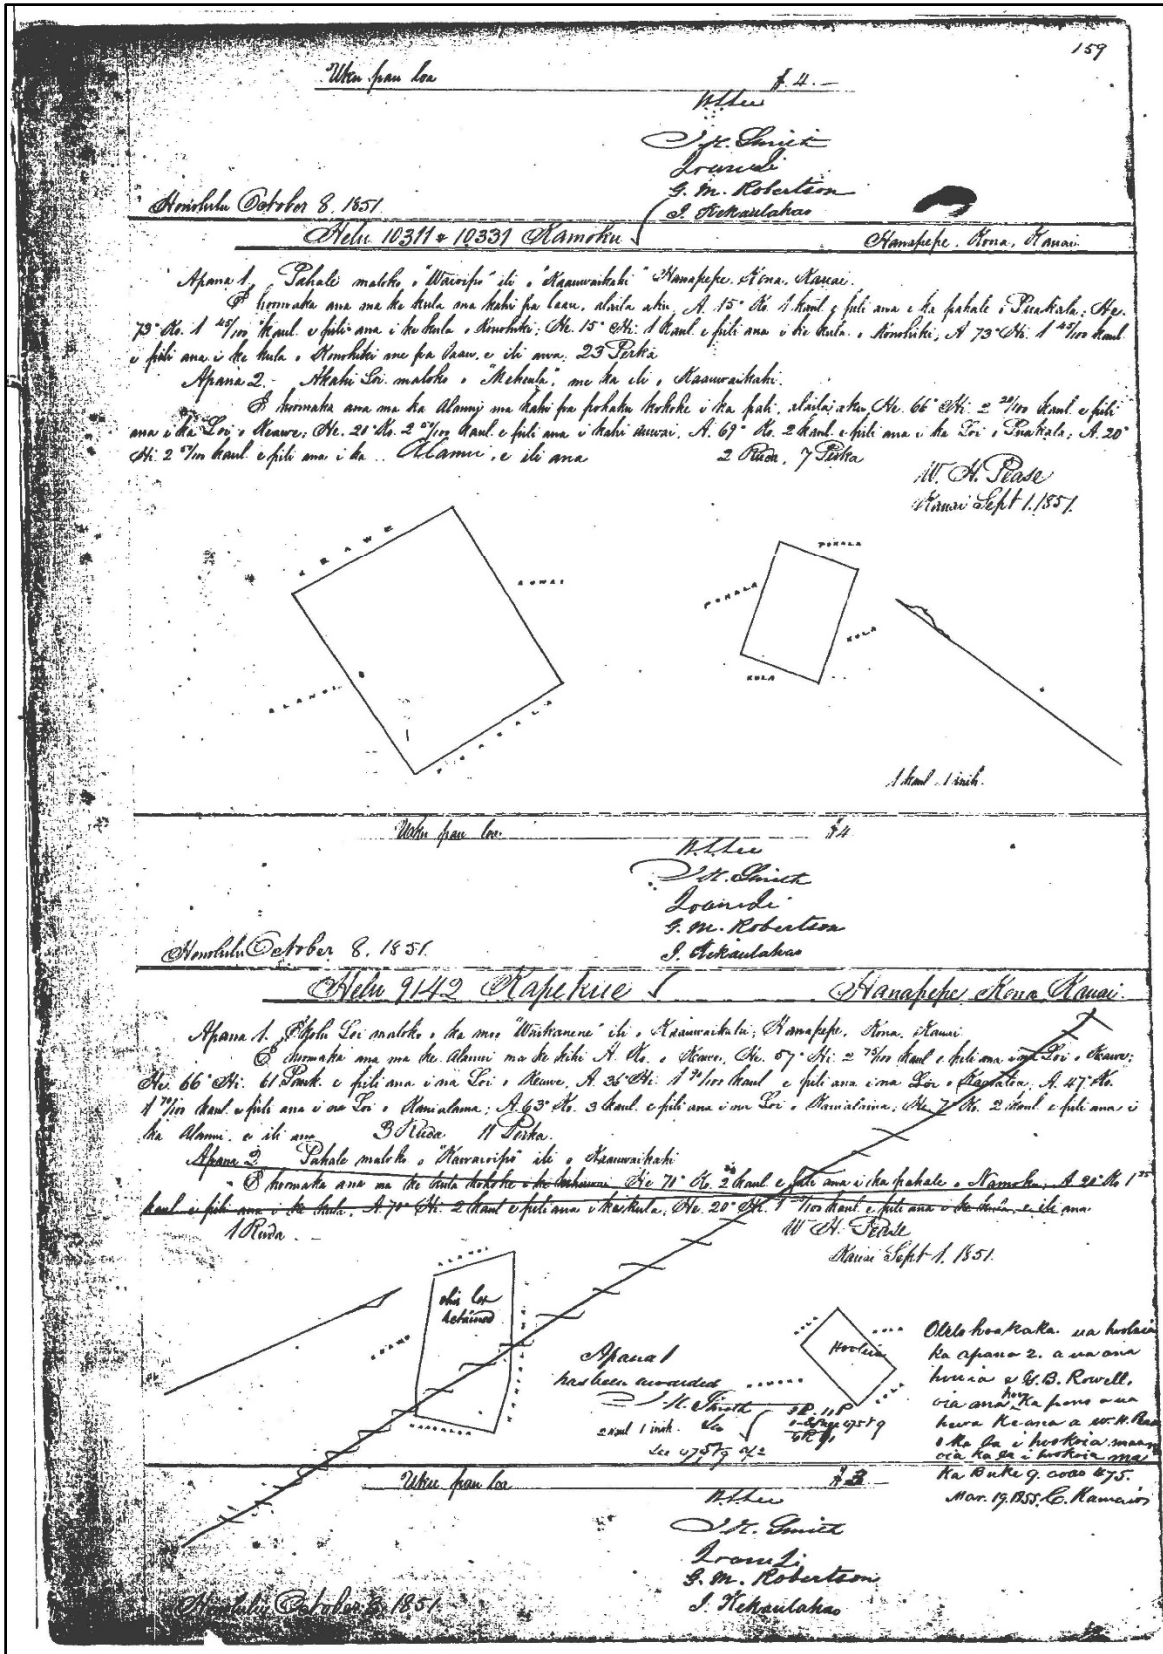 159
Uku pau loa $4.—
W. L. Lee
J. H. Smith
Ioane Ii
G. M. Robertson
J. Kekaulahao
Honolulu October 8. 1851.
Helu 10311 & 10331 Kamoku Hanapepe. Kona. Kauai
Apana 1. Pahale maloko o "Waioipo" ili o "Kaauwaikahi" Hanapepe. Kona. Kauai.
E hoomaka ana ma ke kula ma kahi pa laau, alaila aku, A. 15° Ko. 1 kaul. e pili ana e ka pahale o Puakala; He.
73° Ko. 1 45/100 kaul. e pili ana i ke kula o Konohiki; He. 15° Hi. 1 kaul. e pili ana i ke kula o Konohiki; A 73° Hi. 1 45/100 kaul
e pili ana i ke kula o Konohiki me pa laau. e ili ana 23 Perka
Apana 2.— Akahi Loi. maloko o "Mekeula", me ka ili o Kaauwaikahi.
E hoomaka ana ma ka Alanui ma kahi pa pohaku kokoke i ka pali, alaila aku, He. 66° Hi. 2 kaul. e pili
ana i ka Loi o Keawe; He. 21° Ko. 2 kaul. e pili ana i kahi auwai. A. 69° Ko. 2 kaul. e pili ana i ka Loi o Puakala; A. 20°
Hi. 2 kaul. e pili ana i ka Alanui. e ili ana 2 Ruda, 7 Perka
W. H. Pease
Kauai Sept 1. 1851.
KEAWE
AUWAI
ALANUI
PUAKALA
PUKALA
POHALA
KULA
KULA
1 kaul. 1 inih.
Uku pau loa $4
W. L. Lee
J. H. Smith
Ioane Ii
G. M. Robertson
J. Kekaulahao
Honolulu October 8. 1851.
Helu 9142 Kapekue Hanapepe Kona Kauai.
Apana 1. Ekolu Loi maloko o ka moo "Waikanene" ili o Kaauwaikahi, Hanapepe. Kona. Kauai
E hoomaka ana ma ke Alanui ma ke kihi A. Ko. o Keawe, He. 57° Hi. 2 kaul e pili ana i na Loi o Keawe;
He. 66° Hi. 61 Pauk. e pili ana i na Loi o Keawe, A. 36° Hi. 1 kaul e pili ana i na Loi o; A. 47° Ko.
1 kaul e pili ana i na Loi o Kanialama; A. 63° Ko. 3 kaul. e pili ana i na Loi o Kanialama; He. 7° Ko. 2 kaul. e pili ana i
ka Alanui. e ili ana 3 Ruda 11 Perka.
Apana 2. Pahale maloko o "Kawaioipo" ili o Kaauwaikahi
E hoomaka ana ma ke kula kokoke i ke kahawai He 70° Ko. 2 kaul e pili ana i ka pahale o Namoku, A 20° Ko 1 25
kaul e pili ana i ke kula, A 70° Hi. 2 kaul e pili ana i ke kula, He. 20° Hi. 1 kaul. e pili ana i ke kula, e ili ana
1 Ruda.—
W. H. Pease
Kauai Sept 1. 1851.
this lot
retained
Hooleia
Apana 1
has been awarded
J. H. Smith
2 kaul 1 inih.
See 475 v 9
Olelo hoakaka. ua hooleia
ka apana 2. a ua ana
houia e G. B. Rowell,
oia ana hou ka pono a ua
hewa ke ana a W. H. Pease
o ka la i hookoia
oia ka la i hookoia ma
ka Buke 9. aoao 475.
Mar. 19. 1855.
Uku pau loa $3—
W. L. Lee
J. H. Smith
Ioane Ii
G. M. Robertson
J. Kekaulahao
Honolulu October 8. 1851